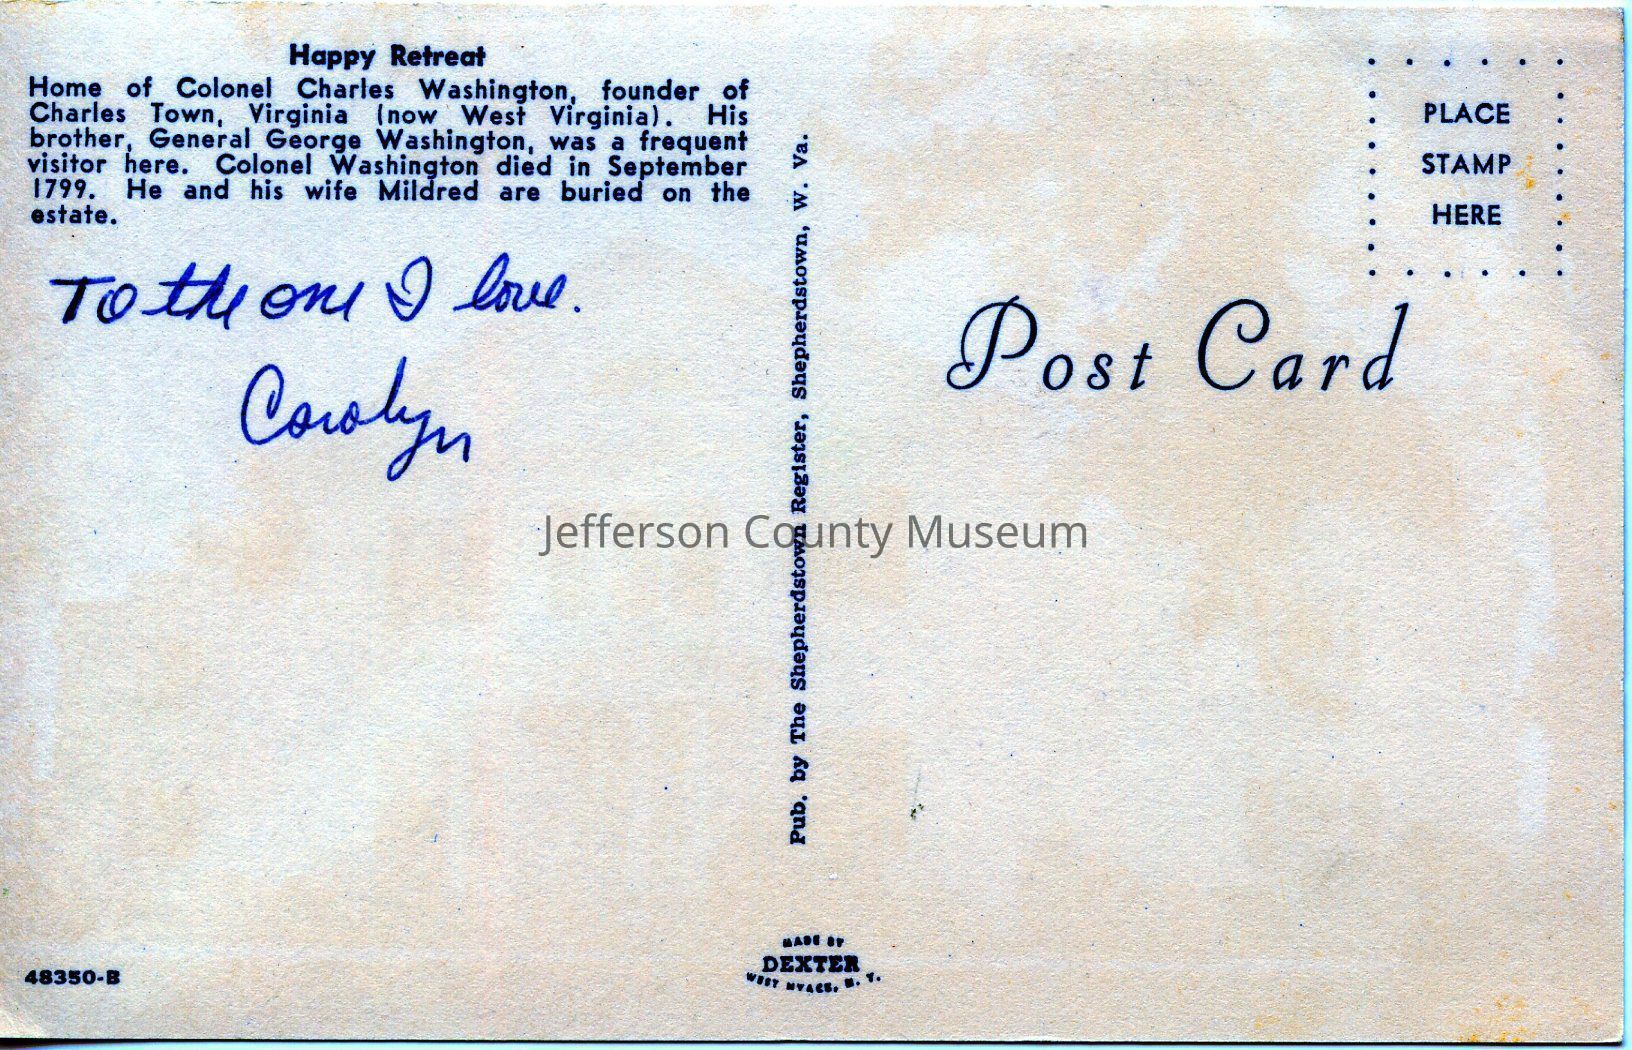 Happy Retreat
Home of Colonel Charles Washington, founder of
Charles Town, Virginia (now West Virginia). His
brother, General George Washington, was a frequent
visitor here. Colonel Washington died in September
1799. He and his wife Mildred are buried on the
estate.
To the one I love.
Carolyn
48350-B
Pub. by The Shepherdstown Register, Shepherdstown, W. Va.
Jefferson County Museum
MADE BY
DEXTER
WEST NYACK, N. Y.
PLACE
STAMP
HERE
Post Card